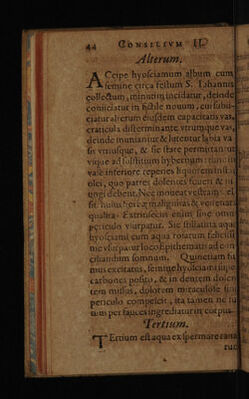 44 CONSILIVM II.
Alterum.
ACcipe hyosciamum album cum
semine circa festum S. Iohannis
collectum, minutim incidatur, deinde
coniiciatur in fictile nouum, cui subii-
ciatur alterum eiusdem capacitatis vas,
craticula disterminante vtrumque vas,
deinde muniantur & lutentur labia va
sis vtriusque, & sic stare permittantur
vsque ad solstitium hybernum: tunc in
vase inferiore reperies liquorem instar
olei, quo partes dolentes
ungi debent. Nec moueat vestram
sit huius maligna vis & venenata
qualitas. Extrinsecus enim sine omni
periculo vsurpatur. Sic stillatitia aqua
hyosciami cum aqua rosarum felicissi
me vsurpatur loco Epithematis ad con
ciliandum somnum. Quinetiam fu
mus excitatus, semine hyosciami super
carbones posito, & in dentem dolen
tem missus, dolorem miraculose sine
periculo compescit, ita tamen ne fu
mus per fauces ingrediatur in corpus.
Tertium.
TErtium est aqua ex spermate rana
rum